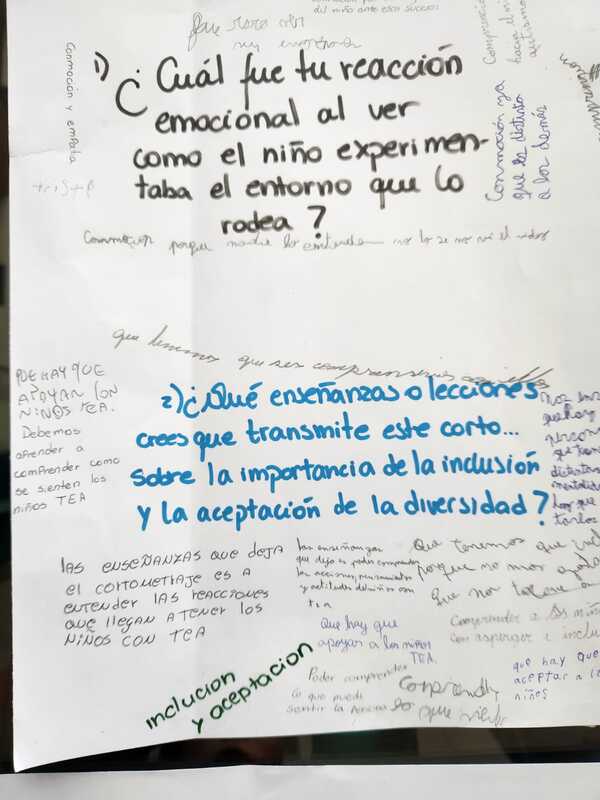 del niño ante esos sucesos
Que
muy
Conmoción y empatía
Comprención
hacia el niño
autismo
1) ¿Cuál fue tu reacción
emocional al ver
como el niño experimen-
taba el entorno que lo
rodea?
Conmoción ya
que es distinto
a los demás
triste
porque nadie lo entiende no lo se no vi el video
que tenemos que ser comprensivos con ellos
2) ¿Qué enseñanzas o lecciones
crees que transmite este corto...
sobre la importancia de la inclusión
y la aceptación de la diversidad?
QUE HAY QUE
APOYAR LOS
NIÑOS TEA.
Debemos
aprender a
comprender como
se sienten los
niños TEA
que hay
LAS ENSEÑANZAS QUE DEJA
EL CORTOMETRAJE ES A
ENTENDER LAS REACCIONES
QUE LLEGAN A TENER LOS
NIÑOS CON TEA
las enseñanzas
que deja es poder comprender
las acciones, pensamientos
y actitudes del niño con
tea
Que tenemos que
porque no mas
que nos
Que hay que
apoyar a los niños
TEA.
Comprender a los niños
con asperger e
que hay que
aceptar a
niños
Poder comprender
lo que puede
sentir la persona
lo que
inclucion
y aceptacion